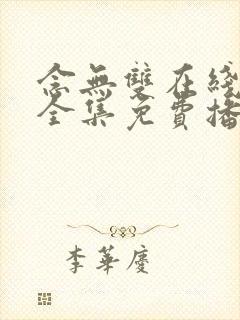 念無雙在綫
全集免費播
李華慶